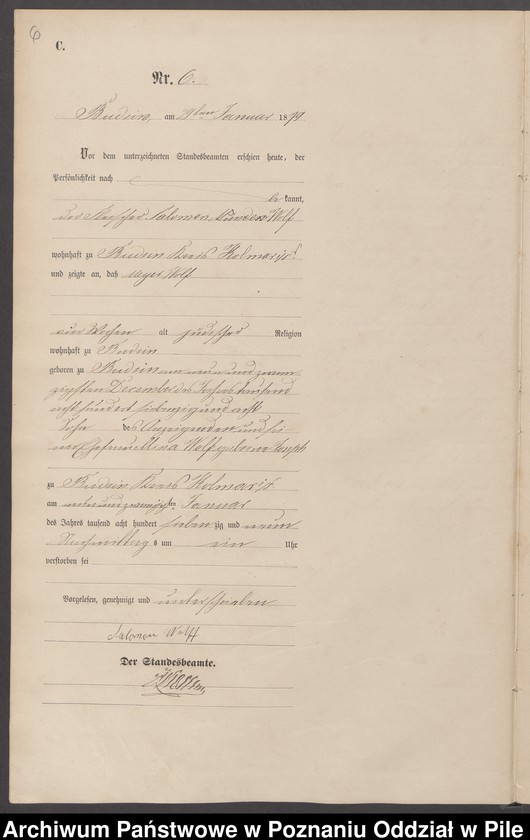 6
C.
Nr. 6.
Budsin, am 29ten Januar 1879
Vor dem unterzeichneten Standesbeamten erschien heute, der
Persönlichkeit nach
be kannt,
der Salomon Wolf
wohnhaft zu Budsin Kreis Kolmar i/P
und zeigte an, daß Wolf
vier Wochen alt jüdischer Religion
wohnhaft zu Budsin
geboren zu Budsin am neun und zwan
zigsten December des Jahres tausend
acht hundert siebenzig und acht
Sohn des Anzeigenden und
Ehefrau Wolf geborne Joseph
zu Budsin Kreis Kolmar i/P
am zwanzigsten Januar
des Jahres tausend acht hundert sieben zig und neun
Nachmittag s um ein Uhr
verstorben sei
Vorgelesen, genehmigt und unterschrieben
Salomon Wolff
Der Standesbeamte.
Archiwum Państwowe w Poznaniu Oddział w Pile